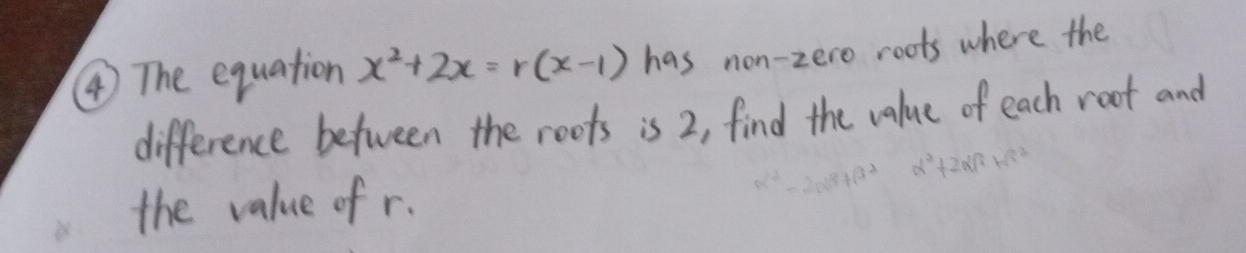 ④ The equation x²+2x = r(x-1) has non-zero roots where the
difference between the roots is 2, find the value of each root and
α²-2αβ+β² α²+2αβ+β²
the value of r.